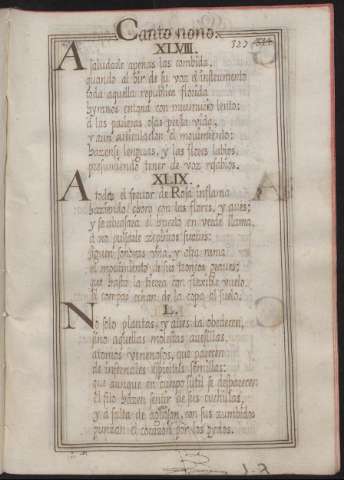 Canto nono.
323
XLVIII.
A saludarle apenas las combida,
quando al oir de su voz el
toda aquella republica florida
hymnos entona con movimiento lento:
a las parleras ojas presta vida,
y aun articulacion el movimiento:
hazense lenguas, y las flores labios,
presumiendo tener de voz resabios.
XLIX.
A todos el fervor de Rosa inflama
haziendo choro con las flores, y aves;
y se abrasara el huerto en verde llama,
a no
siguen sonoras una, y otra rama
el movimiento de sus troncos graves;
que hasta la tierra con flexible vuelo
el compas echan de la copa al suelo.
L.
No solo plantas, y aves la obedecen,
sino aquellas molestas avesillas,
atomos venenosos, que parecen
de infernales espiritus semillas:
que aunque en cuerpo sutil se desparecen
el filo hazen sentir de sus cuchillas,
y a falta de aguijon, con sus zumbidos
punzan el corazon por los oydos.